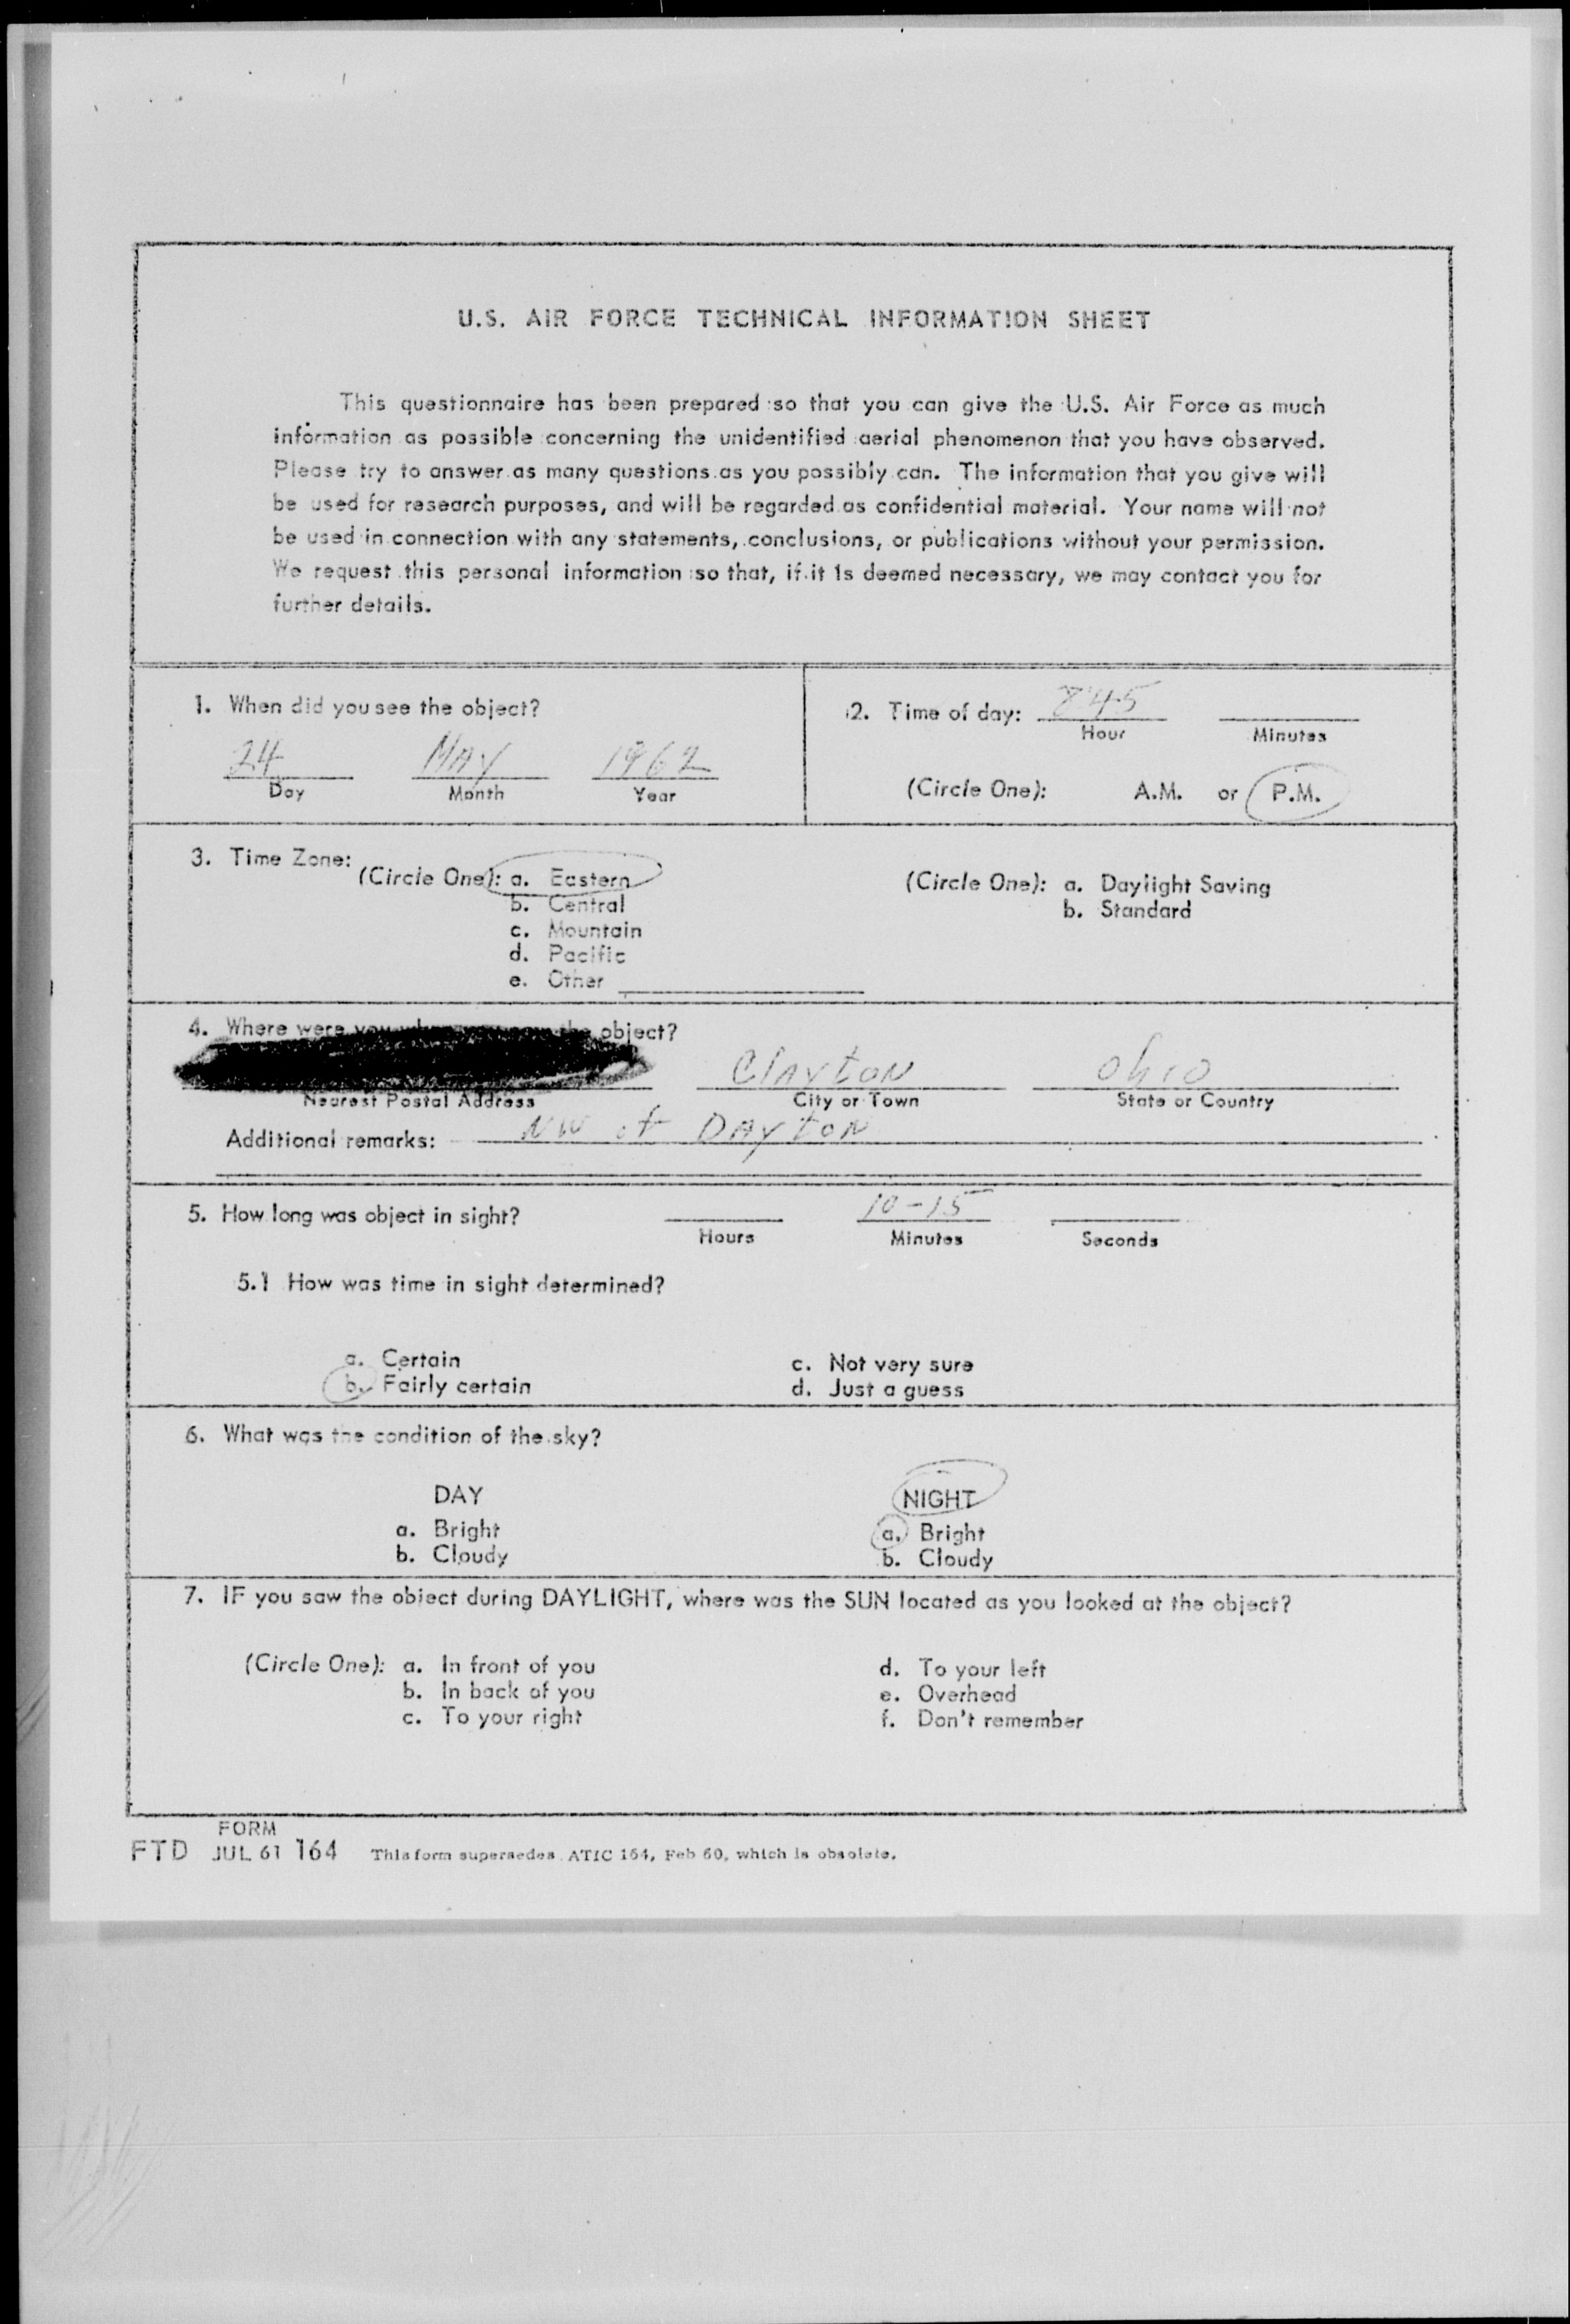 U.S. AIR FORCE TECHNICAL INFORMATION SHEET
This questionnaire has been prepared so that you can give the U.S. Air Force as much
information as possible concerning the unidentified aerial phenomenon that you have observed.
Please try to answer as many questions as you possibly can. The information that you give will
be used for research purposes, and will be regarded as confidential material. Your name will not
be used in connection with any statements, conclusions, or publications without your permission.
We request this personal information so that, if it is deemed necessary, we may contact you for
further details.
1. When did you see the object?
24 MAY 1962
Day Month Year
2. Time of day: 845
Hour Minutes
(Circle One): A.M. or P.M.
3. Time Zone:
(Circle One): a. Eastern
b. Central
c. Mountain
d. Pacific
e. Other
(Circle One): a. Daylight Saving
b. Standard
4. Where were you when you saw the object?
Clayton Ohio
Nearest Postal Address City or Town State or Country
Additional remarks: NW of DAYTON
5. How long was object in sight? 10-15
Hours Minutes Seconds
5.1 How was time in sight determined?
a. Certain
b. Fairly certain
c. Not very sure
d. Just a guess
6. What was the condition of the sky?
DAY
a. Bright
b. Cloudy
NIGHT
a. Bright
b. Cloudy
7. IF you saw the object during DAYLIGHT, where was the SUN located as you looked at the object?
(Circle One): a. In front of you
b. In back of you
c. To your right
d. To your left
e. Overhead
f. Don't remember
FORM
FTD JUL 61 164 This form supersedes ATIC 164, Feb 60, which is obsolete.